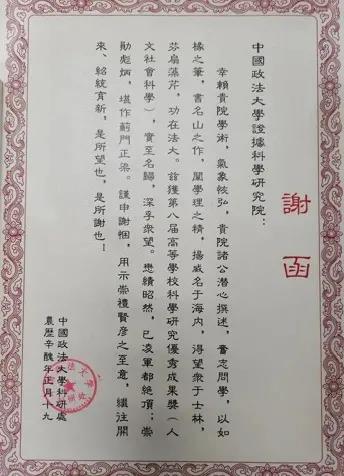 謝函
中國政法大學證據科學研究院：
幸賴貴院學術，氣象恢弘，貴院諸公潛心撰述，奮志問學，以如
椽之筆，書名山之作，闡學理之精，揚威名于海内，得望衆于士林，
芬扇藻芹，功在法大。兹獲第八屆高等學校科學研究優秀成果獎（人
文社會科學），實至名歸，深孚衆望。懋績昭然，已凌軍都絶頂；崇
勛彪炳，堪作薊門正梁。謹申謝悃，用示崇禮賢彦之至意，繼往開
來、紹統育新，是所望也，是所謝也！
中國政法大學科研處
農歷辛醜年正月十九